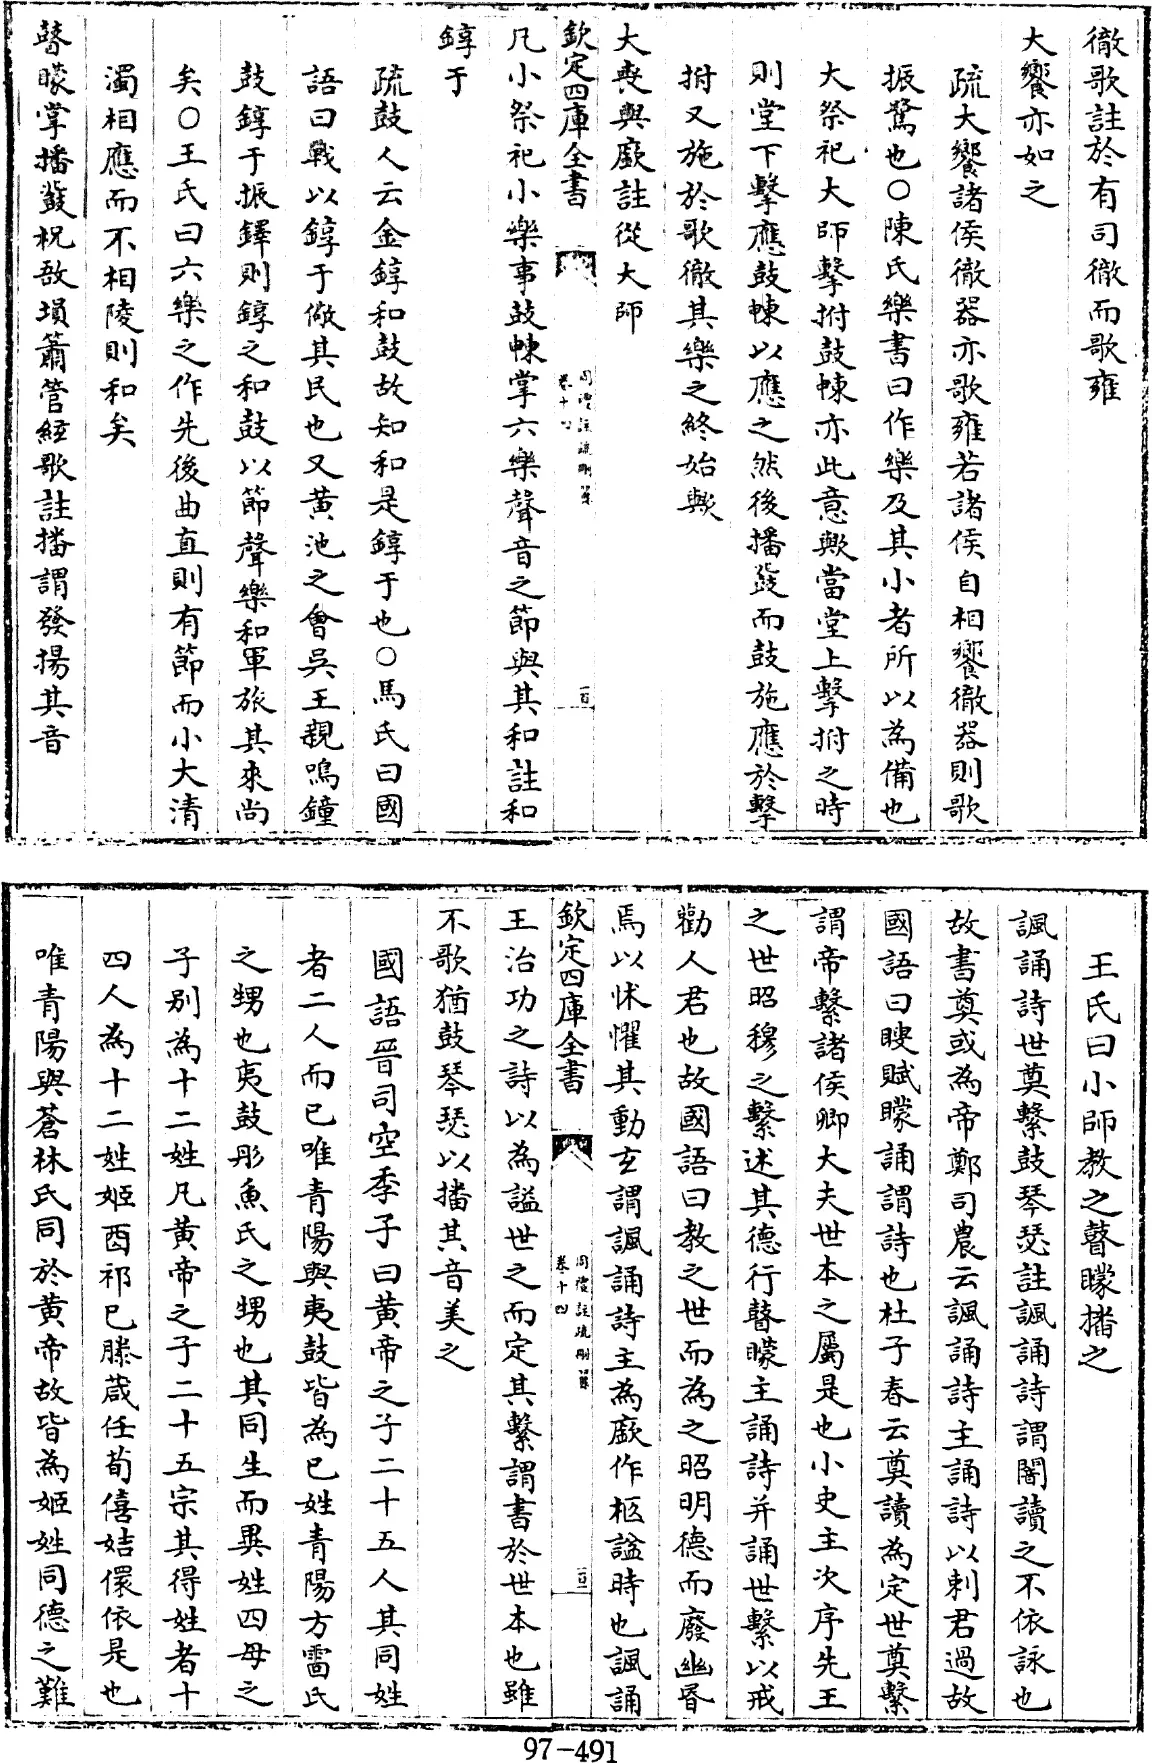 徹歌註於有司徹而歌雍
大饗亦如之
疏大饗諸侯徹器亦歌雍若諸侯自相饗徹器則歌
振鷺也○陳氏樂書曰作樂及其小者所以為備也
大祭祀大師擊拊鼓朄亦此意歟當堂上擊拊之時
則堂下擊應鼓朄以應之然後播鼗而鼓施應於擊
拊又施於歌徹其樂之終始歟
大喪與廞註從大師
欽定四庫全書
周禮註疏刪翼
卷十四
凡小祭祀小樂事鼓朄掌六樂聲音之節與其和註和
錞于
疏鼓人云金錞和鼓故知和是錞于也○馬氏曰國
語曰戰以錞于儆其民也又黃池之會吳王親鳴鐘
鼓錞于振鐸則錞之和鼓以節聲樂和軍旅其來尚
矣○王氏曰六樂之作先後曲直則有節而小大清
濁相應而不相陵則和矣
瞽矇掌播鼗柷敔塤簫管絃歌註播謂發揚其音
王氏曰小師教之瞽矇播之
諷誦詩世奠繫鼓琴瑟註諷誦詩謂闇讀之不依詠也
故書奠或為帝鄭司農云諷誦詩主誦詩以刺君過故
國語曰瞍賦矇誦謂詩也杜子春云奠讀為定世奠繫
謂帝繫諸侯卿大夫世本之屬是也小史主次序先王
之世昭穆之繫述其德行瞽矇主誦詩并誦世繫以戒
勸人君也故國語曰教之世而為之昭明德而廢幽昏
焉以怵懼其動玄謂諷誦詩主為廞作柩諡時也諷誦
欽定四庫全書
周禮註疏刪翼
卷十四
王治功之詩以為諡世之而定其繫謂書於世本也雖
不歌猶鼓琴瑟以播其音美之
國語晉司空季子曰黃帝之子二十五人其同姓
者二人而已唯青陽與夷鼓皆為已姓青陽方雷氏
之甥也夷鼓彤魚氏之甥也其同生而異姓四母之
子別為十二姓凡黃帝之子二十五宗其得姓者十
四人為十二姓姬酉祁已滕葴任荀僖姞儇依是也
唯青陽與蒼林氏同於黃帝故皆為姬姓同德之難
97-491